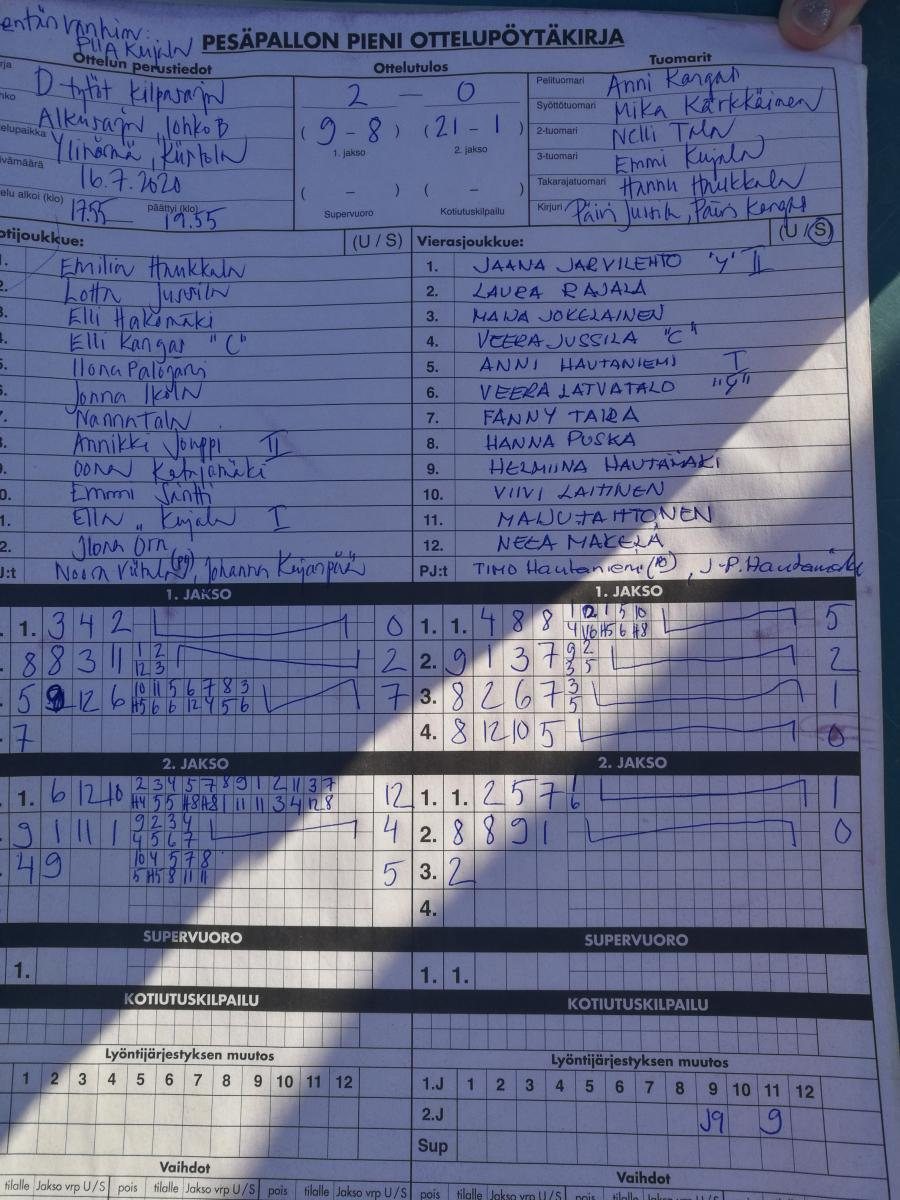 PIIA Kujala
PESÄPALLON PIENI OTTELUPÖYTÄKIRJA
Ottelun perustiedot Ottelutulos Tuomarit
D-tytöt Kilpasarja
Alkusarja, lohko B
16.7.2020
(klo) 17.55 päättyi (klo) 19.55
2 — 0
( 9 - 8 ) ( 21 - 1 )
1. jakso 2. jakso
( - ) ( - )
Supervuoro Kotiutuskilpailu
Pelituomari Anni Kangas
Syöttötuomari Mika Kärkkäinen
2-tuomari Nelli Tala
3-tuomari Emmi Kujala
Takarajatuomari Hannu Haukkala
Kirjuri Päivi Jussila, Päivi Kangas
(U / S) Vierasjoukkue: (U / S)
Emilia Haukkala 1. JAANA JARVILEHTO "Y" II
Lotta Jussila 2. LAURA RAJALA
Elli Hakomäki 3. MAIJA JOKELAINEN
Elli Kangas "C" 4. VEERA JUSSILA "C"
Ilona Palojärvi 5. ANNI HAUTANIEMI I
Jonna Ikola 6. VEERA LATVATALO
Nanna Tala 7. FANNY TAIRA
Annikki Jouppi II 8. HANNA PUSKA
Oona Katajamäki 9. HELMIINA HAUTAMÄKI
Emmi Säntti 10. VIIVI LAITINEN
Ella Kujala I 11. MAIJU TAHTONEN
Ilona Orn 12. NEEA MÄKELÄ
Noora Viitala (PJ), Johanna PJ:t TIMO Hautaniemi, J-P. Hautamäki
1. JAKSO 1. JAKSO
1. 3 4 2 0 1. 1. 4 8 8 5
8 8 3 11 1 2 2 2. 9 1 3 7 9 2 2
12 3 3 5
5 12 6 10 11 5 6 7 8 3 7 3. 8 2 6 7 3 1
H5 6 6 12 4 5 6 5
7 4. 8 12 10 5 0
2. JAKSO 2. JAKSO
1. 6 12 10 2 3 4 5 7 8 9 1 2 11 3 7 12 1. 1. 2 5 7 1 1
H4 5 5 H8 H8 1 11 11 3 4 12 8 6
9 1 11 1 9 2 3 4 4 2. 8 8 9 1 0
4 5 6 7
4 9 10 4 5 7 8 5 3. 2
5 H5 8 11 11
4.
SUPERVUORO SUPERVUORO
1. 1. 1.
KOTIUTUSKILPAILU KOTIUTUSKILPAILU
Lyöntijärjestyksen muutos Lyöntijärjestyksen muutos
1 2 3 4 5 6 7 8 9 10 11 12 1.J 1 2 3 4 5 6 7 8 9 10 11 12
2.J 9
Sup
Vaihdot Vaihdot
tilalle Jakso vrp U/S pois tilalle Jakso vrp U/S pois tilalle Jakso vrp U/S pois